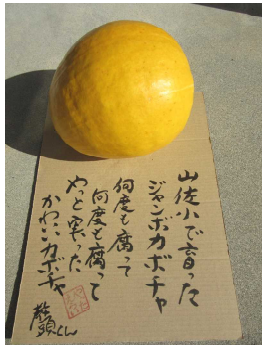 山佐小で育った
ジャンボカボチャ
何度も腐って
何度も腐って
やっと実った
かわいいカボチャ